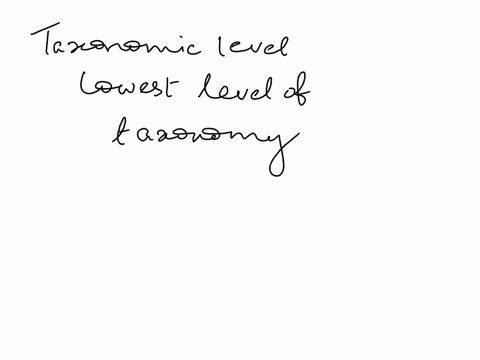 Taxonomic level
lowest level of
taxonomy